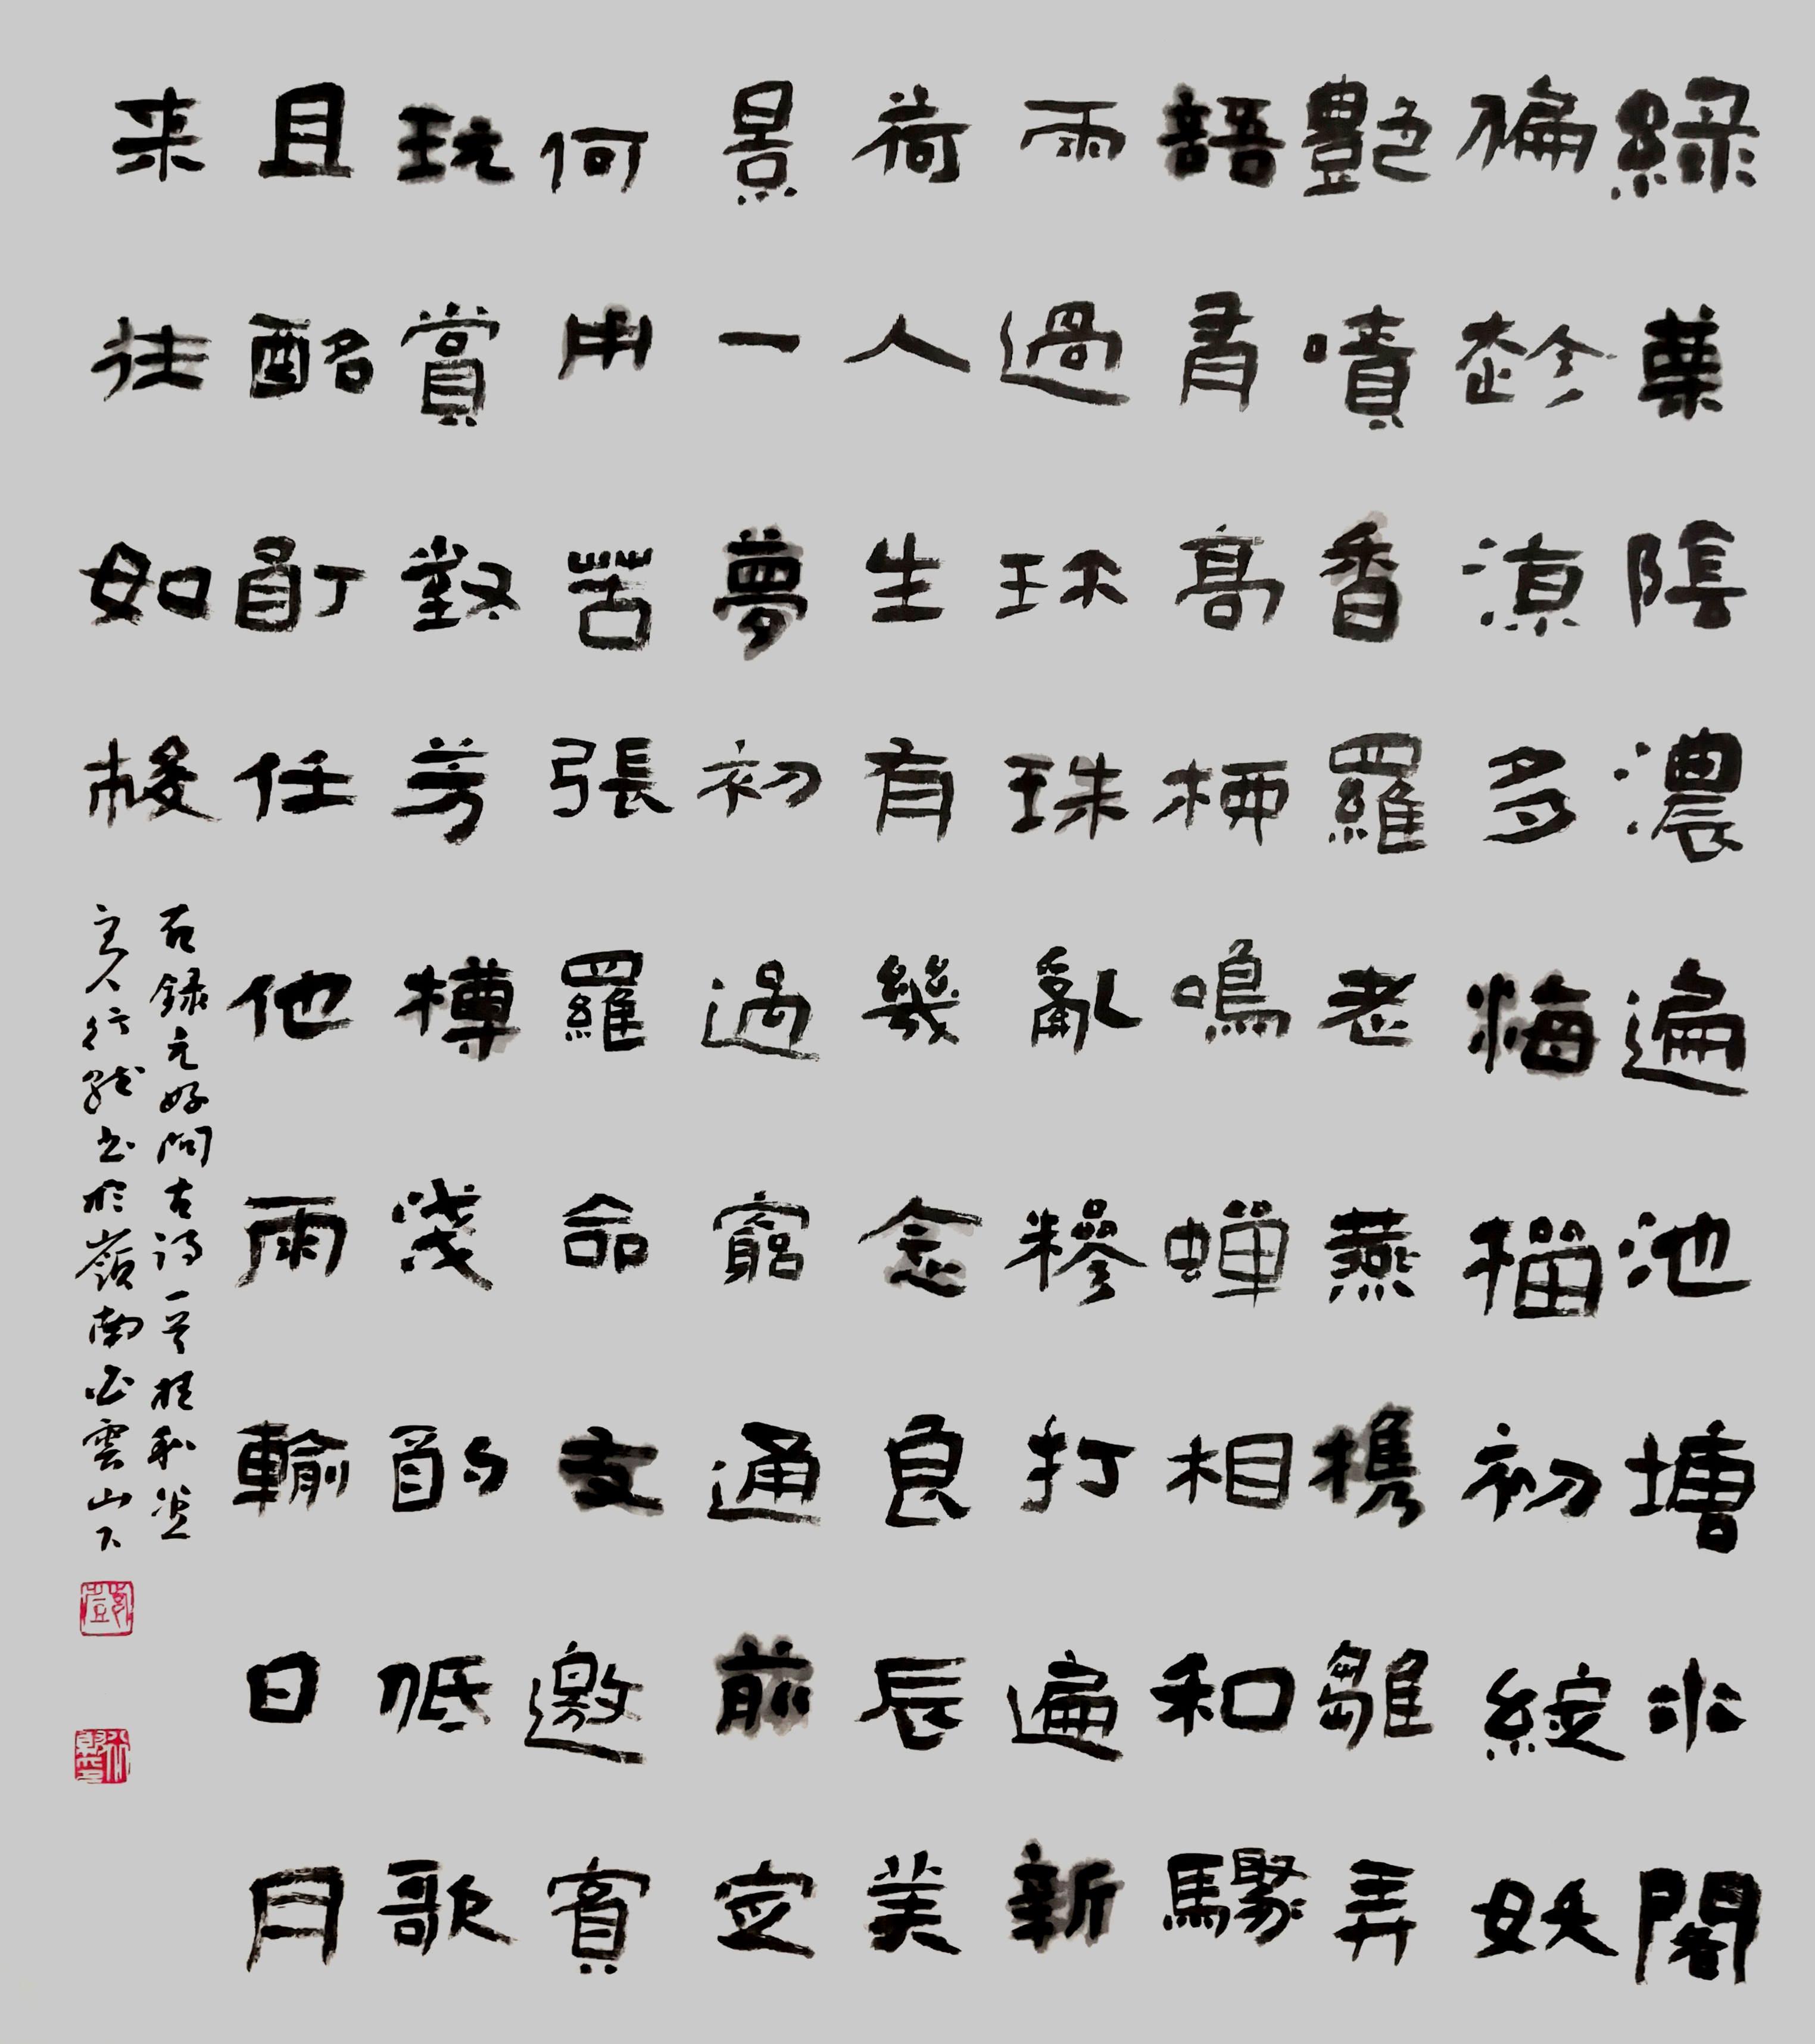 綠葉陰濃遍池塘水閣
偏趁涼多海榴初綻妖
艷噴香羅老燕携雛弄
語有高柳鳴蟬相和驟
雨過珎珠亂糝打遍新
荷人生有幾念良辰美
景一夢初過窮通前定
何用苦張羅命友邀賓
玩賞對芳樽淺酌低歌
且酩酊任他雨輪日月
来往如梭
右錄元好問古詩一首桂和堂
主人行書於嶺南白雲山下